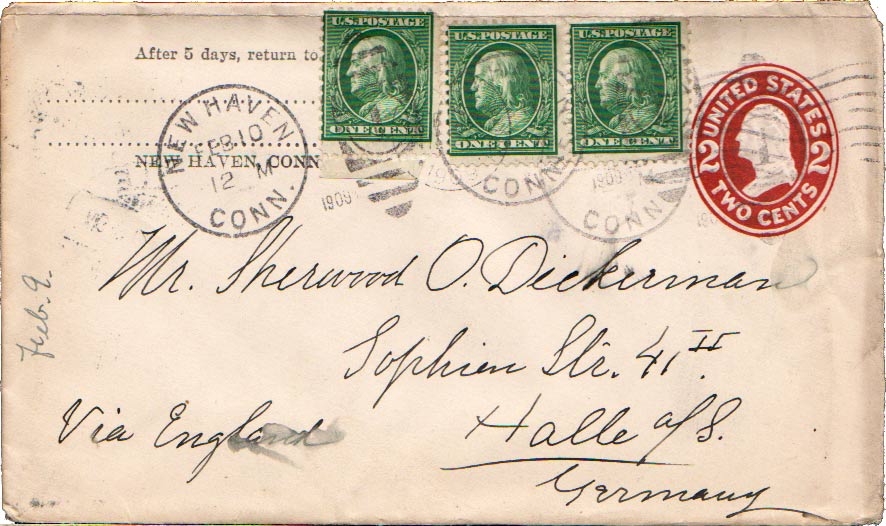 After 5 days, return to
U.S. POSTAGE
ONE CENT
U.S. POSTAGE
ONE CENT
U.S. POSTAGE
ONE CENT
UNITED STATES
2 2
TWO CENTS
NEW HAVEN
FEB 10
12 M
CONN.
NEW HAVEN, CONN
1909
CONN
1909
CONN
Mr. Sherwood O. Dickerman
Sophien Str. 41 II.
Halle a/S.
Germany
Via England
Feb. 9.